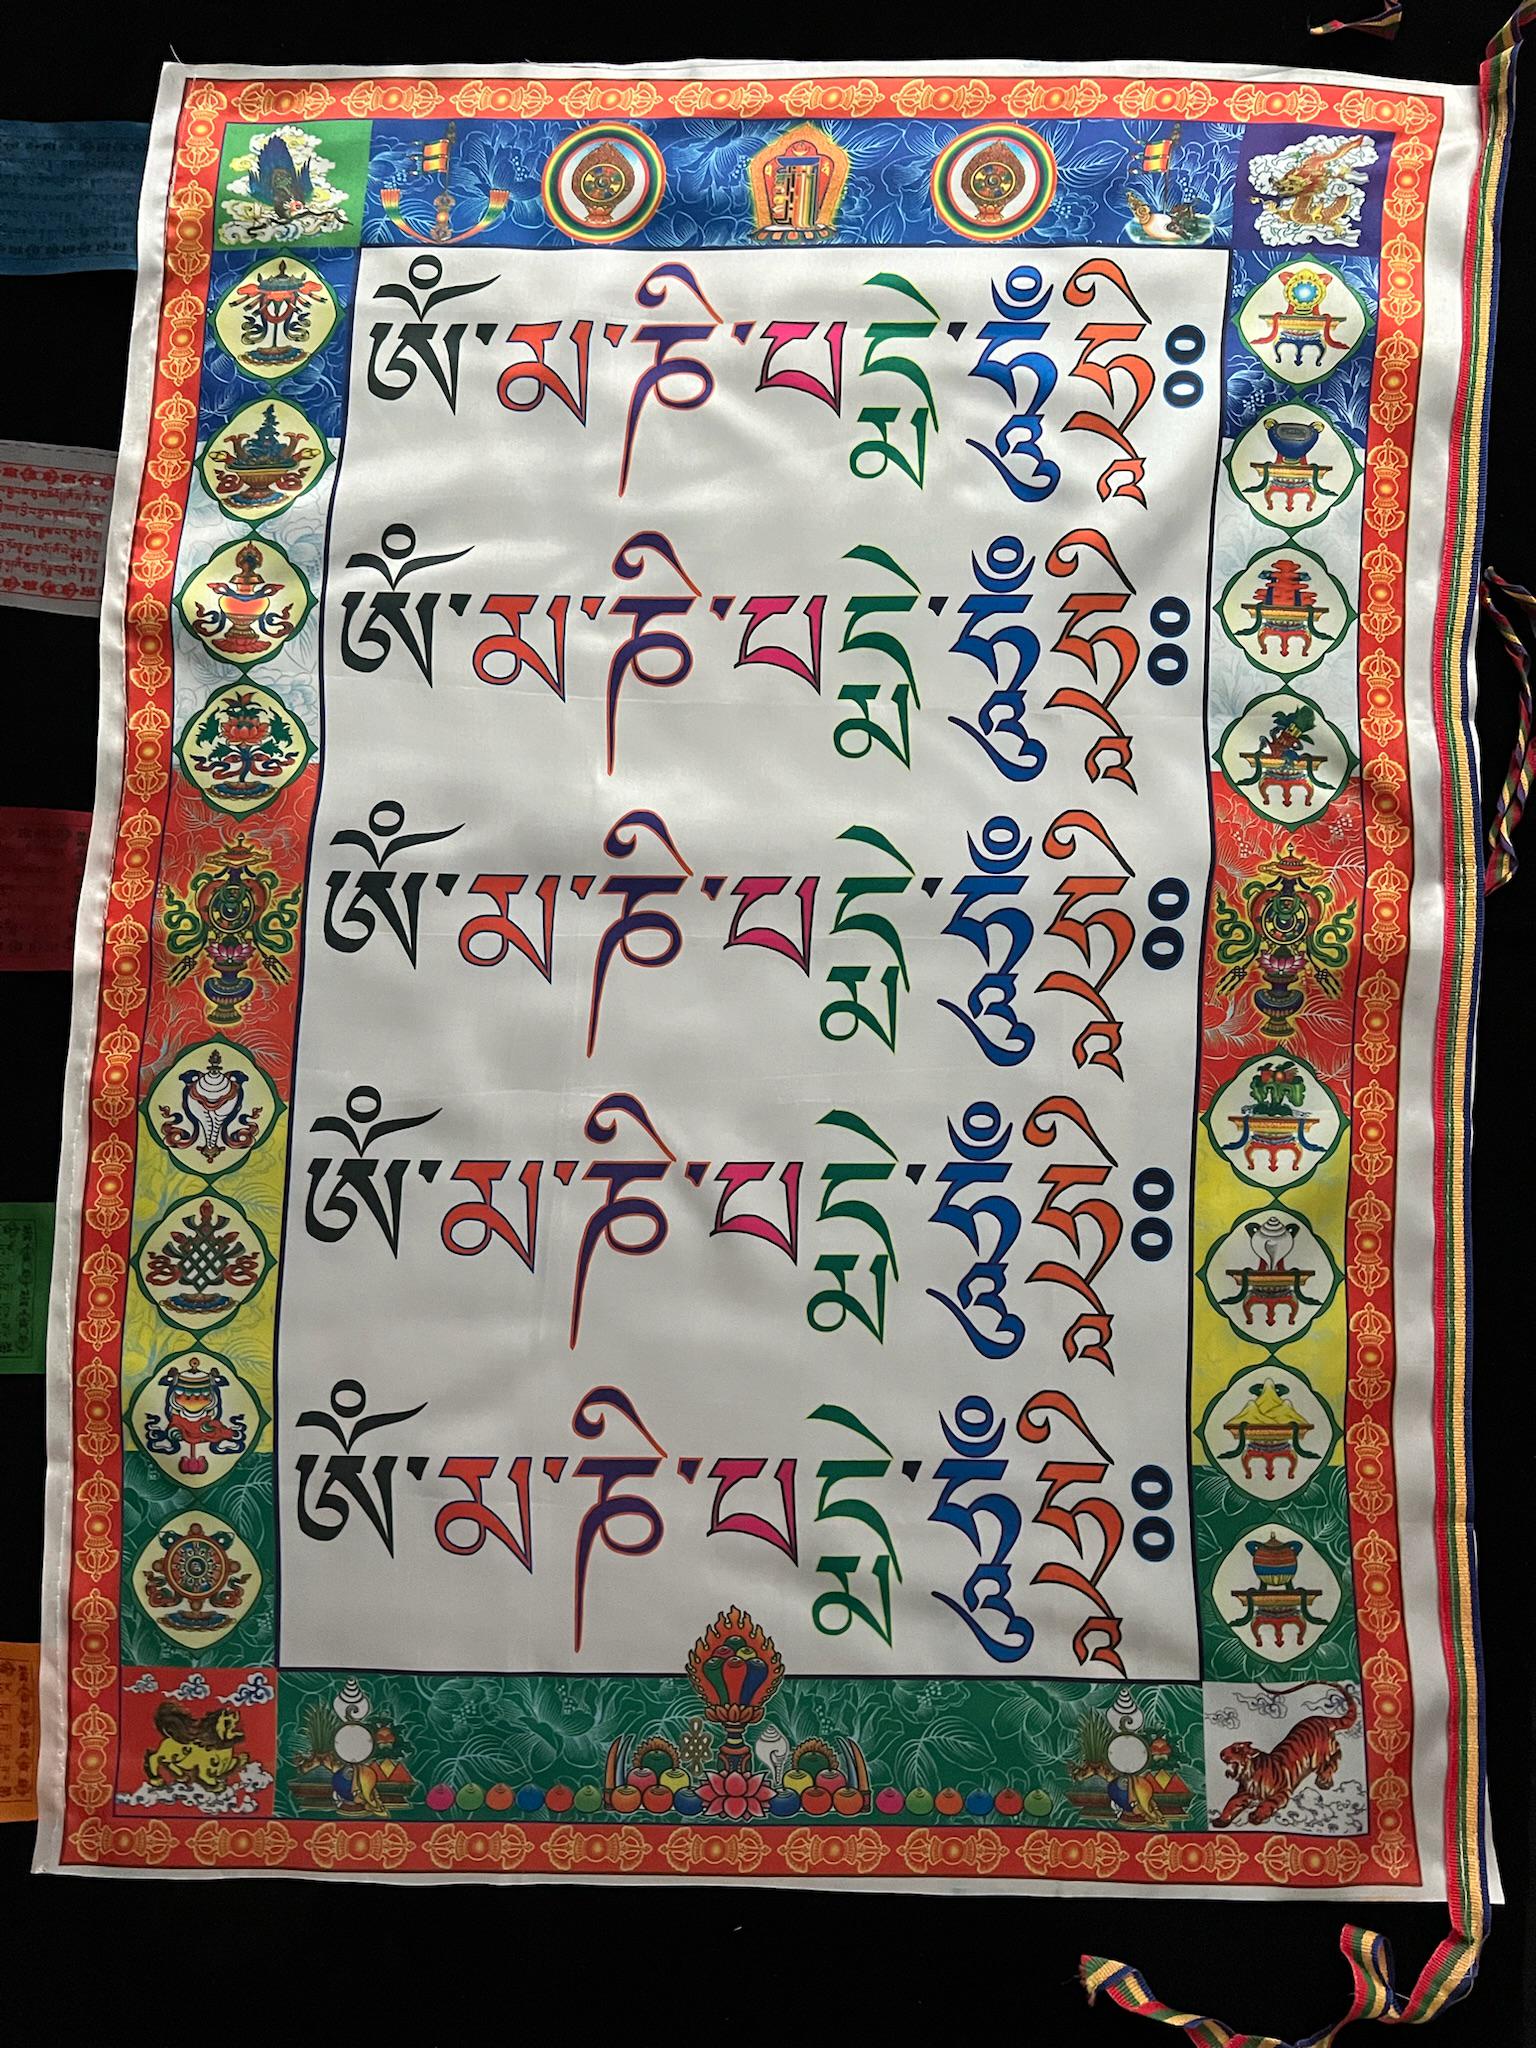 ཨོཾ་མ་ཎི་པདྨེ་ཧཱུྃཧྲཱིཿ
ཨོཾ་མ་ཎི་པདྨེ་ཧཱུྃཧྲཱིཿ
ཨོཾ་མ་ཎི་པདྨེ་ཧཱུྃཧྲཱིཿ
ཨོཾ་མ་ཎི་པདྨེ་ཧཱུྃཧྲཱིཿ
ཨོཾ་མ་ཎི་པདྨེ་ཧཱུྃཧྲཱིཿ